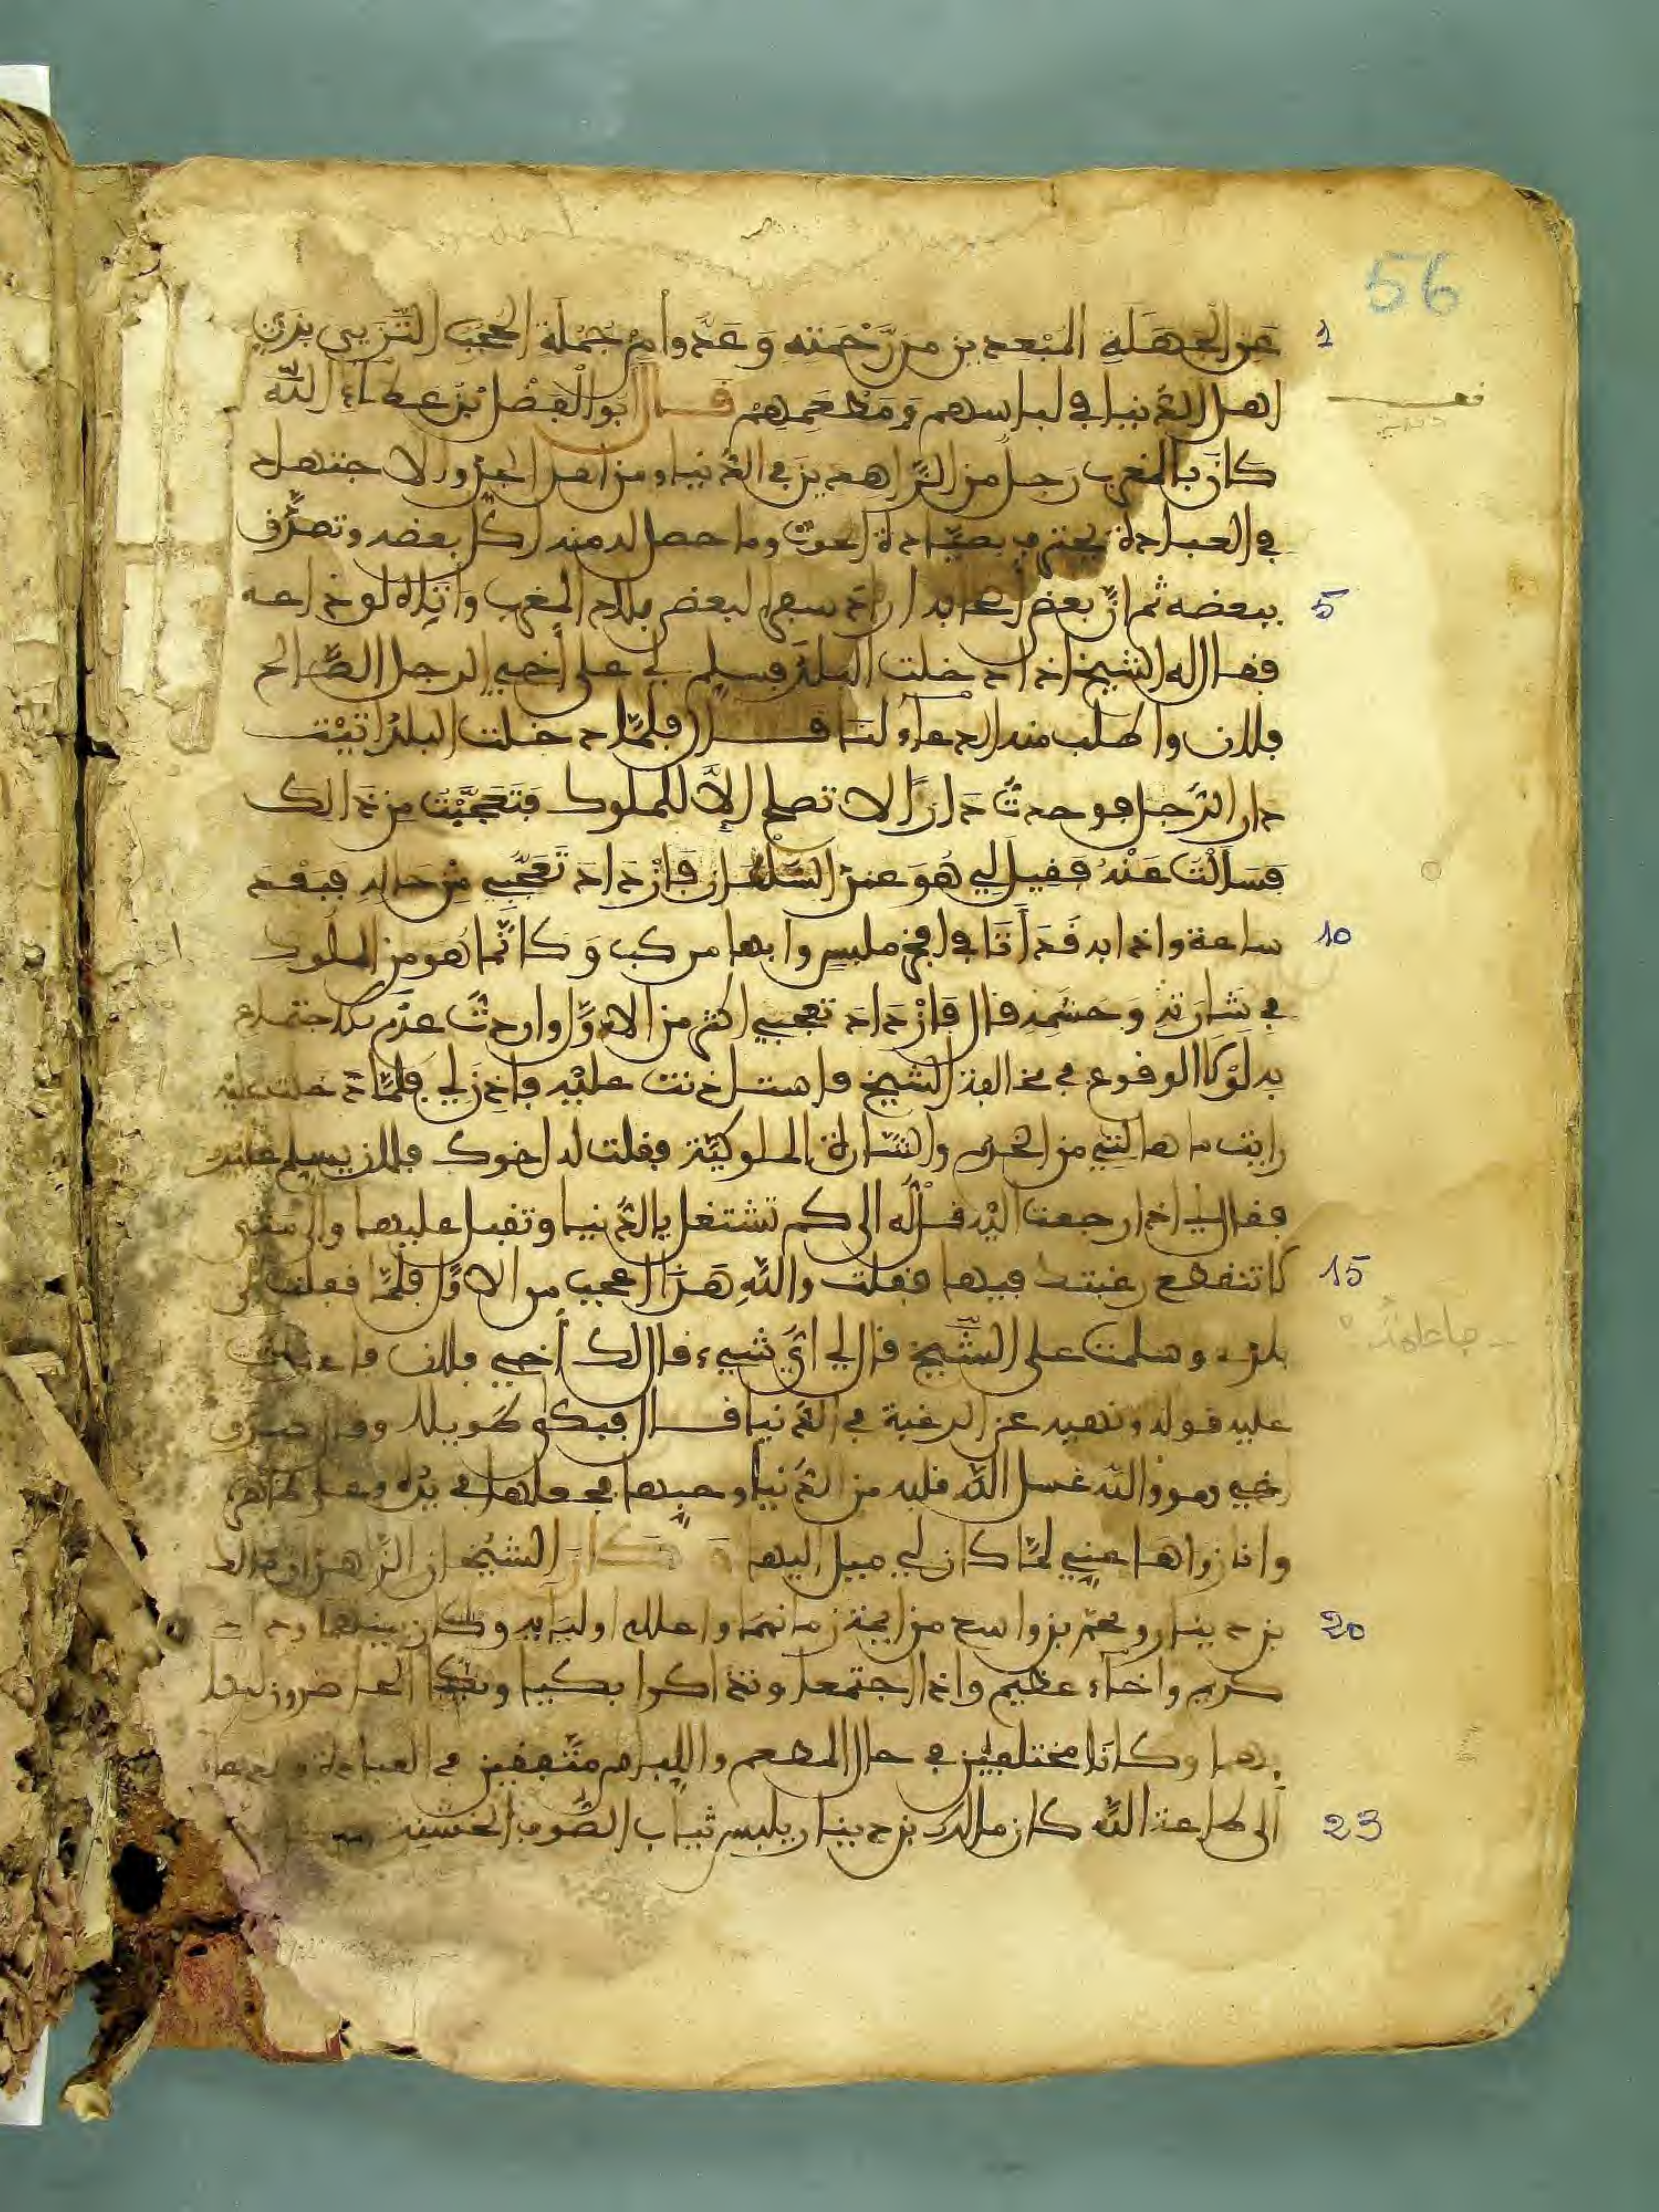 56
1 عن الجهلة المبعدين من رحمته وعدوا من جملة الحجب التزيي بزي
اهل الدنيا في لباسهم ومطعمهم قال ابو الفضل بن عطاء الله
كان بالمغرب رجل من الزاهدين في الدنيا ومن اهل الجد والاجتهاد
في العبادة يحترف بصيادة الحوت وما حصل له منه اكل بعضه وتصرف
5 ببعضه ثم ان بعض اصحابه اراد سفرا لبعض بلاد المغرب واتاه لوداعه
فقال له الشيخ اذا دخلت البلد فسلم لي على أخي الرجل الصالح
فلان واطلب منه الدعاء لنا قال فلما دخلت البلد اتيت
دار الرجل فوجدت دارا لا تصلح إلا للملوك فتعجبت من ذالك
فسألت عنه فقيل لي هو عند السلطان فازداد تعجبي من حاله فبعد
10 ساعة واذا به قد أتا في افخر ملبس وابها مركب وكأنما هو من الملوك
في شارته وحشمه قال فازداد تعجبي اكثر من الاول واردت عدم الاجتماع
به لولا الوقوع في مخالفة الشيخ فاستاذنت عليه فاذن لي فلما دخلت عليه
رايت ما هالني من الخدم والشارة الملوكية فقلت له اخوك فلان يسلم عليك
فقال لي اذا رجعت اليه قل له الى كم تشتغل بالدنيا وتقبل عليها والى متى
15 لا تنقطع رغبتك فيها فقلت والله هذا اعجب من الاول فلما قفلت الى
بلدي وسلمت على الشيخ قال لي أي شيء قال لك أخي فلان فاعدت
عليه قوله ونهيه عن الرغبة في الدنيا قال فبكى طويلا وقال صدق
أخي وهو والله غسل الله قلبه من الدنيا وحبها فجعلها في يده
وانا زواها عني لما كان لي ميل اليها كان الشيخان الزاهدان مالك
20 بن دينار ومحمد بن واسع من ايمة زمانهما واعلام اوليايه وكان بينهما وداد
كريم واخاء عظيم واذا اجتمعا وتذاكرا بكيا وبكا الحاضرون
وكانا مختلفين في حال المطعم واللباس متفقين في العبادة
23 الى طاعة الله كان مالك بن دينار يلبس ثياب الصوف الخشنة